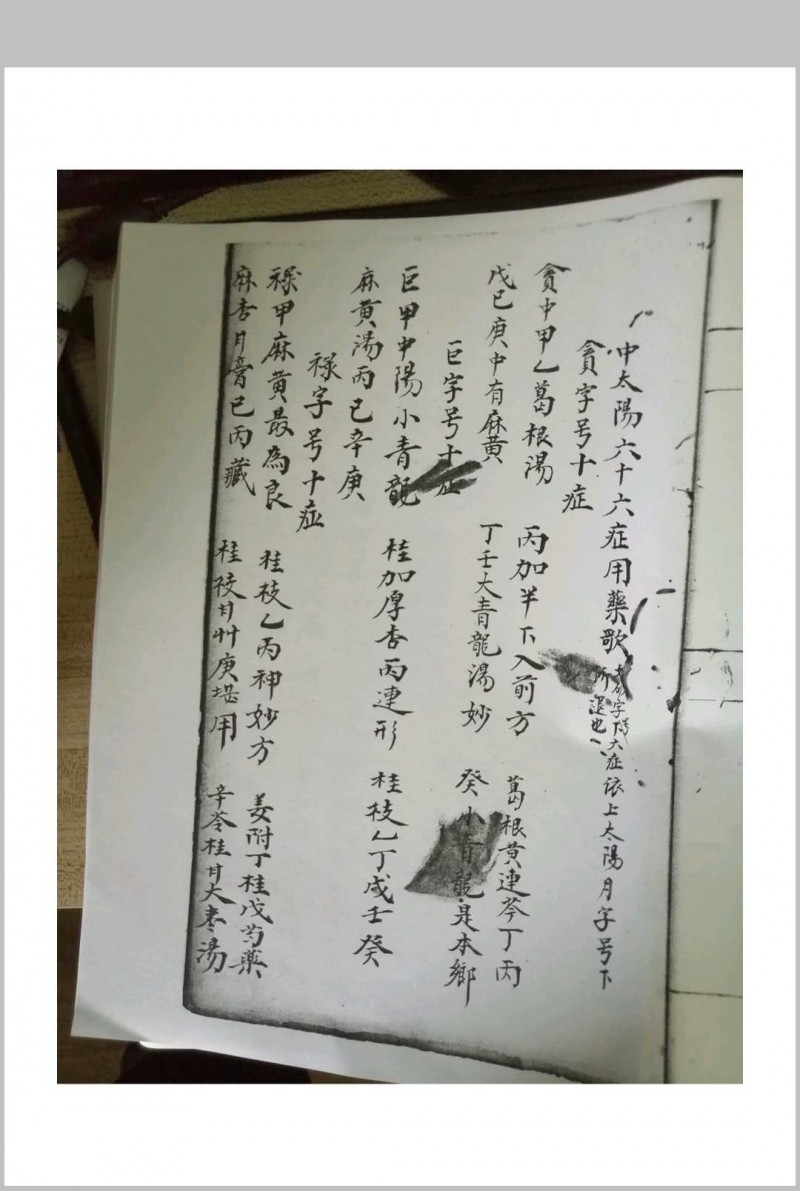 中太陽六十六症用藥歌 字下大症依上太陽月字号下
所遺也
貪字号十症
貪中甲乙葛根湯 丙加半下入前方 葛根黄連芩丁丙
戊己庚中有麻黄 丁壬大青龍湯妙 癸小青龍是本鄉
巨字号十症
巨甲中陽小青龍 桂加厚杏丙連形 桂枝乙丁戊壬癸
麻黄湯丙己辛庚
禄字号十症
禄甲麻黄最為良 桂枝乙丙神妙方 姜附丁桂戊芍藥
麻杏甘膏己丙藏 桂枝甘艸庚堪用 辛苓桂甘大枣湯